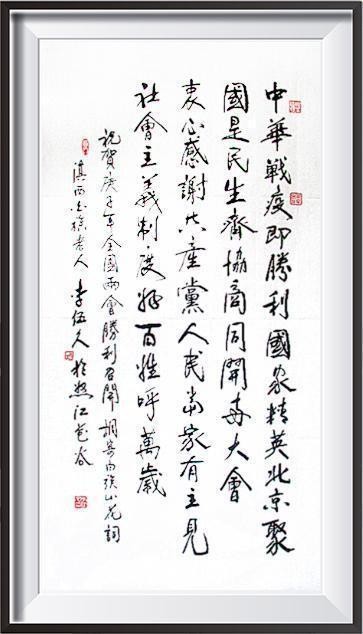 中華戰疫即勝利國家精英北京聚
國是民生齊協商同開每大會
衷心感謝共產黨人民當家有主見
社會主義制度好百姓呼萬歲
祝賀庚子年全國兩會勝利召開調寄白族山花詞
滇西白族老人李伍久於怒江芭谷